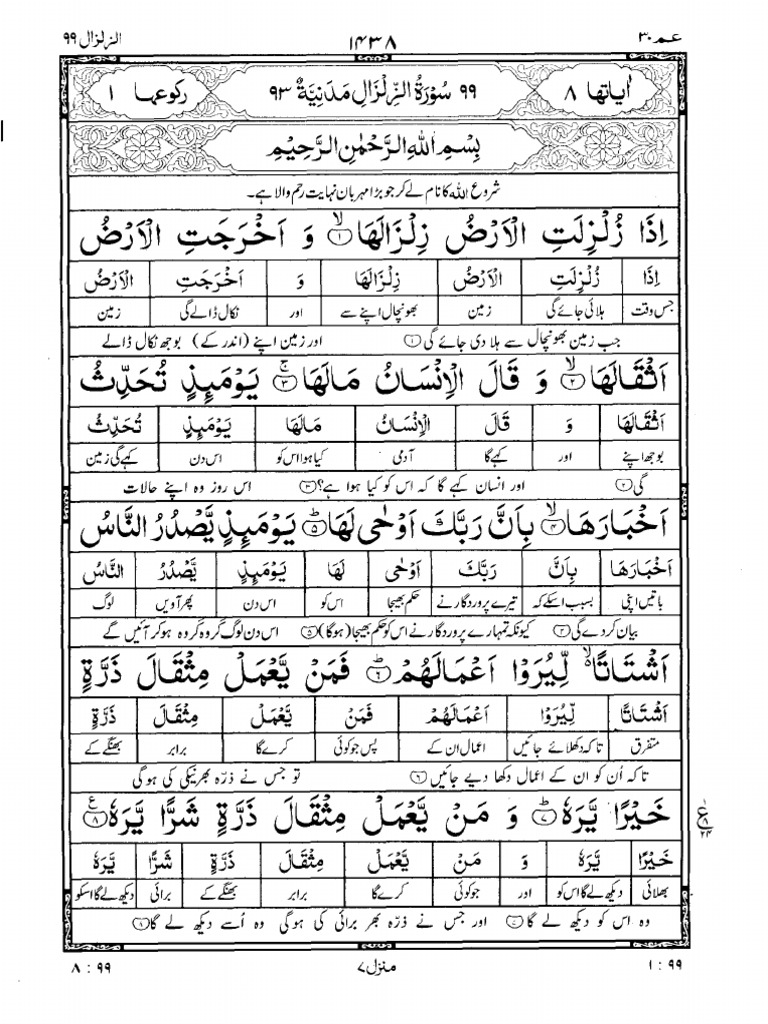 عم ٣٠ ١٤٣٨ الزلزال ٩٩
اٰیاتها ٨ ٩٩ سُوْرَةُ الزِّلْزَالِ مَدَنِيَّةٌ ٩٣ رکوعها ١
بِسْمِ اللّٰهِ الرَّحْمٰنِ الرَّحِيْمِ
شروع اللہ کا نام لے کر جو بڑا مہربان نہایت رحم والا ہے۔
اِذَا زُلْزِلَتِ الْاَرْضُ زِلْزَالَهَا ۙ١ وَ اَخْرَجَتِ الْاَرْضُ
اِذَا زُلْزِلَتِ الْاَرْضُ زِلْزَالَهَا وَ اَخْرَجَتِ الْاَرْضُ
جس وقت ہلائی جائے گی زمین بھونچال اپنے سے اور نکال ڈالے گی زمین
جب زمین بھونچال سے ہلا دی جائے گی ١ اور زمین اپنے (اندر کے) بوجھ نکال ڈالے
اَثْقَالَهَا ۙ٢ وَ قَالَ الْاِنْسَانُ مَا لَهَا ۚ٣ يَوْمَئِذٍ تُحَدِّثُ
اَثْقَالَهَا وَ قَالَ الْاِنْسَانُ مَا لَهَا يَوْمَئِذٍ تُحَدِّثُ
بوجھ اپنے اور کہے گا آدمی کیا ہوا اس کو اس دن کہے گی زمین
گی ٢ اور انسان کہے گا کہ اس کو کیا ہوا ہے؟ ٣ اس روز وہ اپنے حالات
اَخْبَارَهَا ۙ٤ بِاَنَّ رَبَّكَ اَوْحٰى لَهَا ؕ٥ يَوْمَئِذٍ يَّصْدُرُ النَّاسُ
اَخْبَارَهَا بِاَنَّ رَبَّكَ اَوْحٰى لَهَا يَوْمَئِذٍ يَّصْدُرُ النَّاسُ
باتیں اپنی بسبب اسکے کہ تیرے پروردگار نے حکم بھیجا اس کو اس دن پھر آویں لوگ
بیان کر دے گی ٤ کیونکہ تمہارے پروردگار نے اس کو حکم بھیجا (ہوگا) ٥ اس دن لوگ گروہ گروہ ہو کر آئیں گے
اَشْتَاتًا ۙ۬ لِّيُرَوْا اَعْمَالَهُمْ ؕ٦ فَمَنْ يَّعْمَلْ مِثْقَالَ ذَرَّةٍ
اَشْتَاتًا لِّيُرَوْا اَعْمَالَهُمْ فَمَنْ يَّعْمَلْ مِثْقَالَ ذَرَّةٍ
متفرق تاکہ دکھلائے جائیں اعمال ان کے پس جو کوئی کرے گا برابر بھنگے کے
تاکہ اُن کو ان کے اعمال دکھا دیے جائیں ٦ تو جس نے ذرّہ بھر نیکی کی ہوگی
خَيْرًا يَّرَهٗ ؕ٧ وَ مَنْ يَّعْمَلْ مِثْقَالَ ذَرَّةٍ شَرًّا يَّرَهٗ ٨ ع
خَيْرًا يَّرَهٗ وَ مَنْ يَّعْمَلْ مِثْقَالَ ذَرَّةٍ شَرًّا يَّرَهٗ
بھلائی دیکھ لے گا اس کو اور جو کوئی کرے گا برابر بھنگے کے برائی دیکھ لے گا اسکو
وہ اس کو دیکھ لے گا ٧ اور جس نے ذرّہ بھر برائی کی ہوگی وہ اُسے دیکھ لے گا ٨
١ : ٩٩ منزل ٧ ٨ : ٩٩